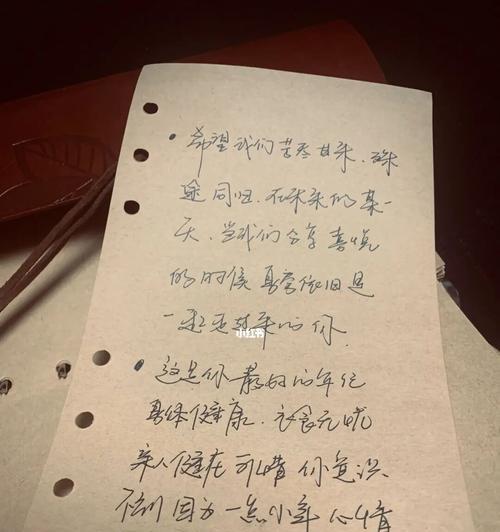 希望我们苦尽甘来、殊
途同归、在未来的某一
天、当我们分享喜悦
的时候身旁依旧是
一起走过来的你
小红书
这是你最好的年纪
身体健康、衣食无忧
亲人健在 可惜你意识
不到 因为一点小事 心情